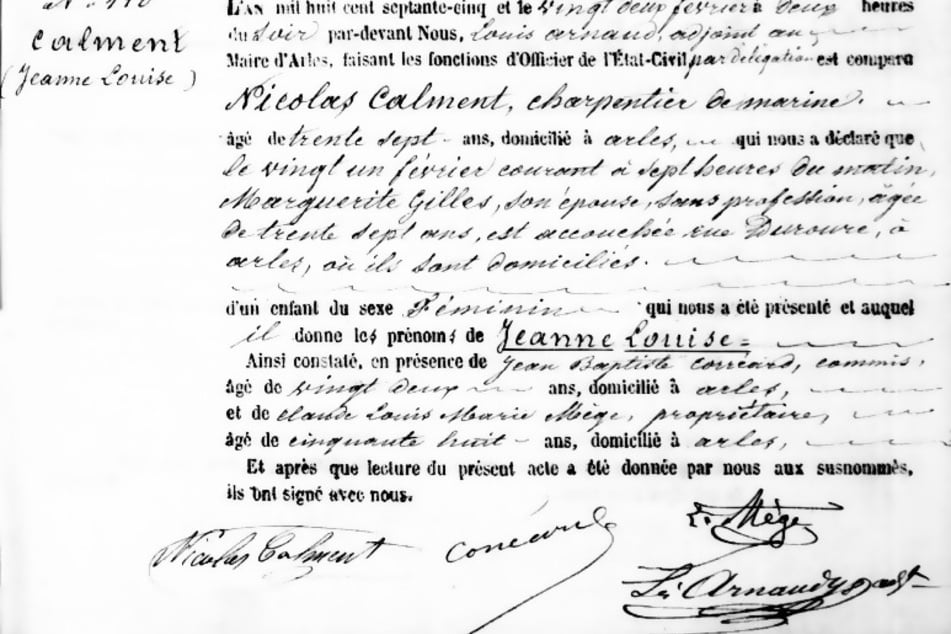 calment
(Jeanne Louise)
L'AN mil huit cent septante-cinq et le vingt deux février à deux heures
du soir par-devant Nous, Louis arnaud, adjoint au
Maire d'Arles, faisant les fonctions d'Officier de l'État-Civil par délégation est comparu
Nicolas Calment, charpentier de marine.
âgé de trente sept ans, domicilié à arles, qui nous a déclaré que
le vingt un février courant à sept heures du matin,
Marguerite Gilles, son épouse, sans profession, âgée
de trente sept ans, est accouchée rue Duroure, à
arles, où ils sont domiciliés.
d'un enfant du sexe Féminin qui nous a été présenté et auquel
il donne les prénoms de Jeanne Louise =
Ainsi constaté, en présence de Jean Baptiste corréard, commis,
âgé de vingt deux ans, domicilié à arles,
et de claude Louis Marie Mège, propriétaire,
âgé de cinquante huit ans, domicilié à arles,
Et après que lecture du présent acte a été donnée par nous aux susnommés,
ils ont signé avec nous.
L. Mège
Nicolas Calment